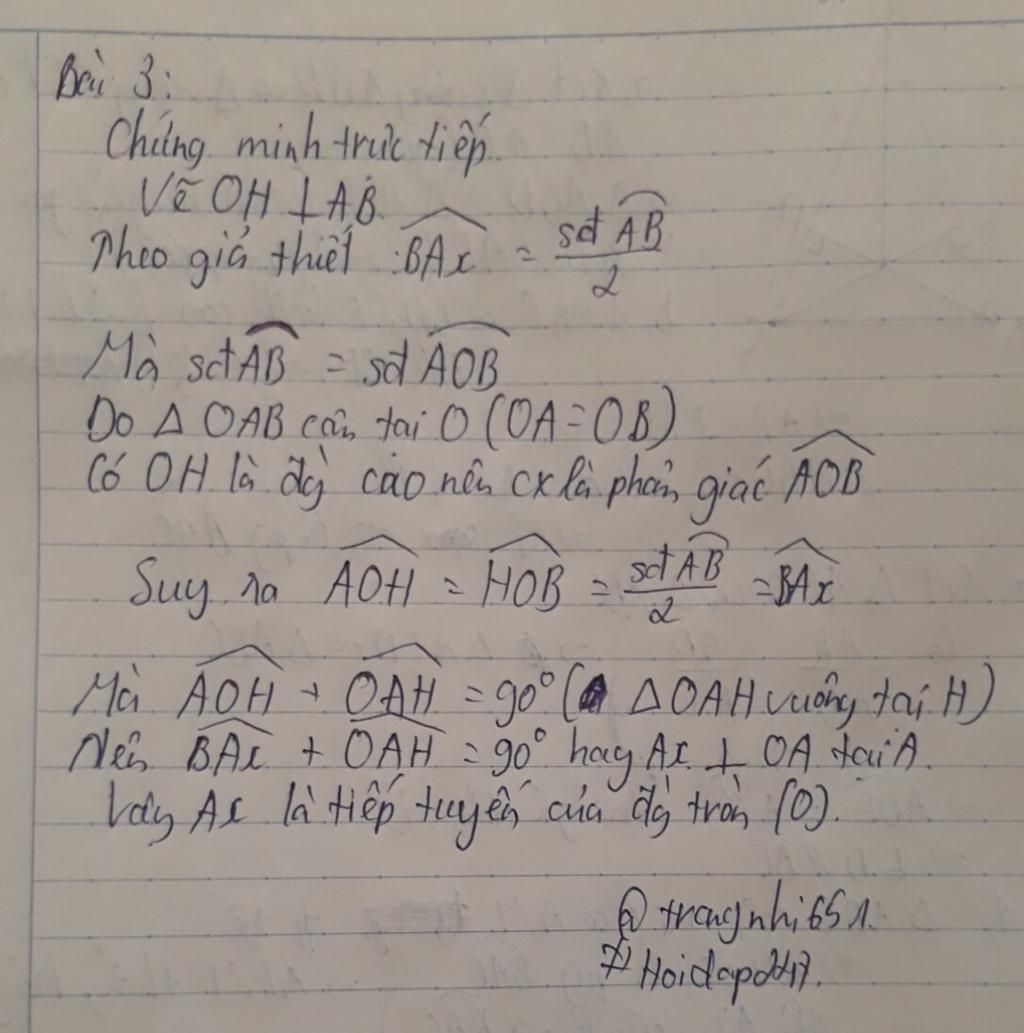 Bài 3:
Chứng minh trực tiếp.
Vẽ OH ⊥ AB.
Theo giả thiết \widehat{BAx} = \frac{sđ \overset{\frown}{AB}}{2}
Mà sđ \overset{\frown}{AB} = sđ \widehat{AOB}
Do Δ OAB cân tại O (OA = OB)
Có OH là đg cao nên cx là phân giác \widehat{AOB}
Suy ra \widehat{AOH} = \widehat{HOB} = \frac{sđ \overset{\frown}{AB}}{2} = \widehat{BAx}
Mà \widehat{AOH} + \widehat{OAH} = 90° (Δ OAH vuông tại H)
Nên \widehat{BAx} + \widehat{OAH} = 90° hay Ax ⊥ OA tại A.
Vậy Ax là tiếp tuyến của đg tròn (O).
@ trangnhi651.
# Hoidap247.